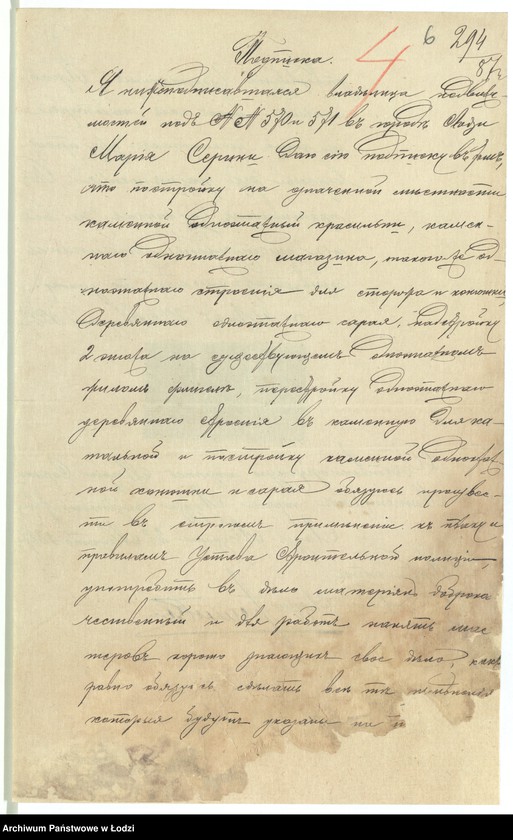 6 294
87
4
Подписка.
Я нижеподписавшаяся владелица недвижи-
мостей подъ №№ 570 и 571 въ городѣ Лодзи
Марія Серини даю сію подписку въ томъ,
что постройку на означенной мѣстности
каменной одноэтажный красильни, камен-
наго одноэтажнаго магазина, такого же од-
ноэтажнаго строенія для сторожа и конюшни,
деревяннаго одноэтажнаго сарая, надстройку
2 этажа на существующемъ одноэтажномъ
жиломъ флигелѣ, перестройку одноэтажнаго
деревяннаго строенія въ каменную для ка-
тальной и постройку каменной одноэтаж-
ной конюшни и сарая обязуюсь произвес-
ти въ строгомъ примѣненіи къ плану и
правиламъ Устава Строительной полиціи,
употребить въ дѣло матеріалъ доброка-
чественный и для работъ нанять мас-
теровъ хорошо знающихъ свое дѣло, какъ
равно обязуюсь сдѣлать всѣ тѣ
которыя будутъ указаны на
Archiwum Państwowe w Łodzi